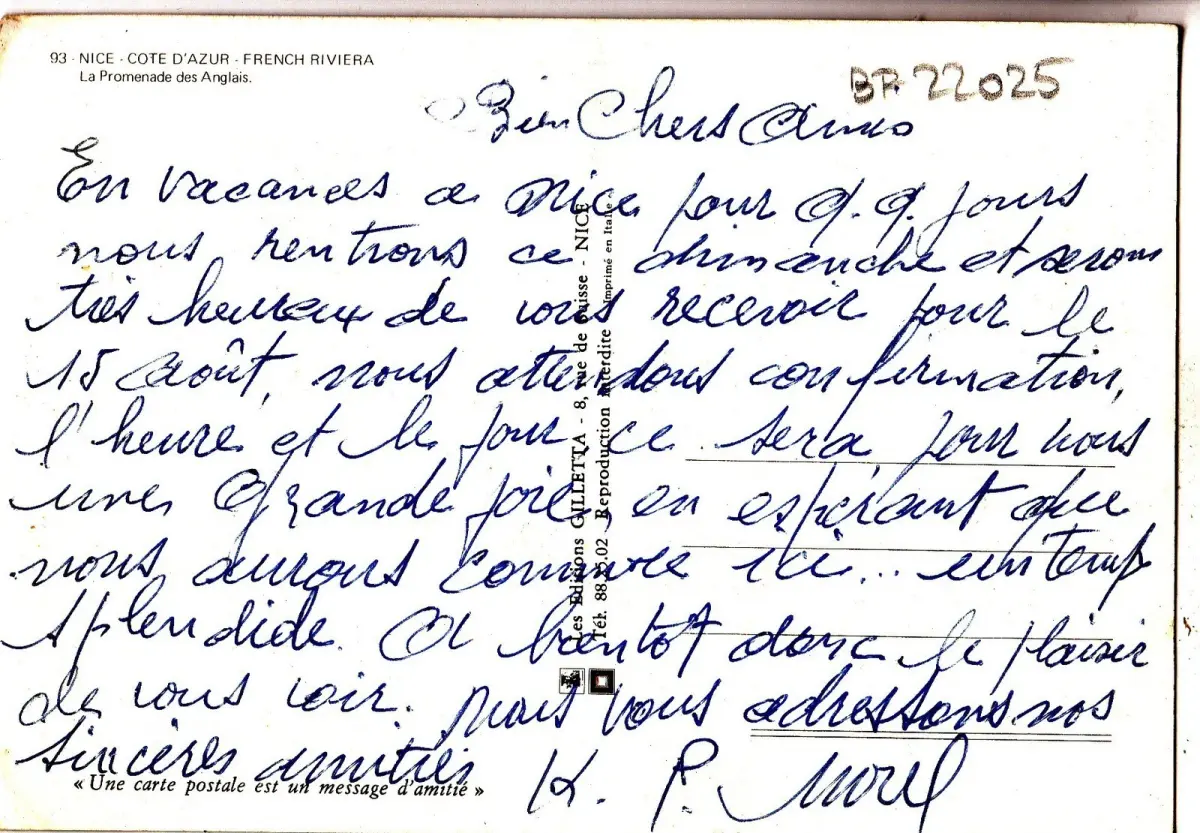 93 - NICE - COTE D'AZUR - FRENCH RIVIERA
La Promenade des Anglais.
BF 22025
Bien Chers Amis
En vacances a Nice pour q.q. jours
nous rentrons ce dimanche et serons
très heureux de vous recevoir pour le
15 Août, nous attendons confirmation,
l'heure et le jour ce sera pour nous
une grande joie, en espérant que
nous aurons comme ici... un temps
splendide. A bientôt donc le plaisir
de vous voir. Nous vous adressons nos
sincères amitiés
K. P. Morel
Les Editions GILLETTA - 8, rue de Suisse - NICE
Tél. 88.35.02 Reproduction interdite Imprimé en Italie
« Une carte postale est un message d'amitié »